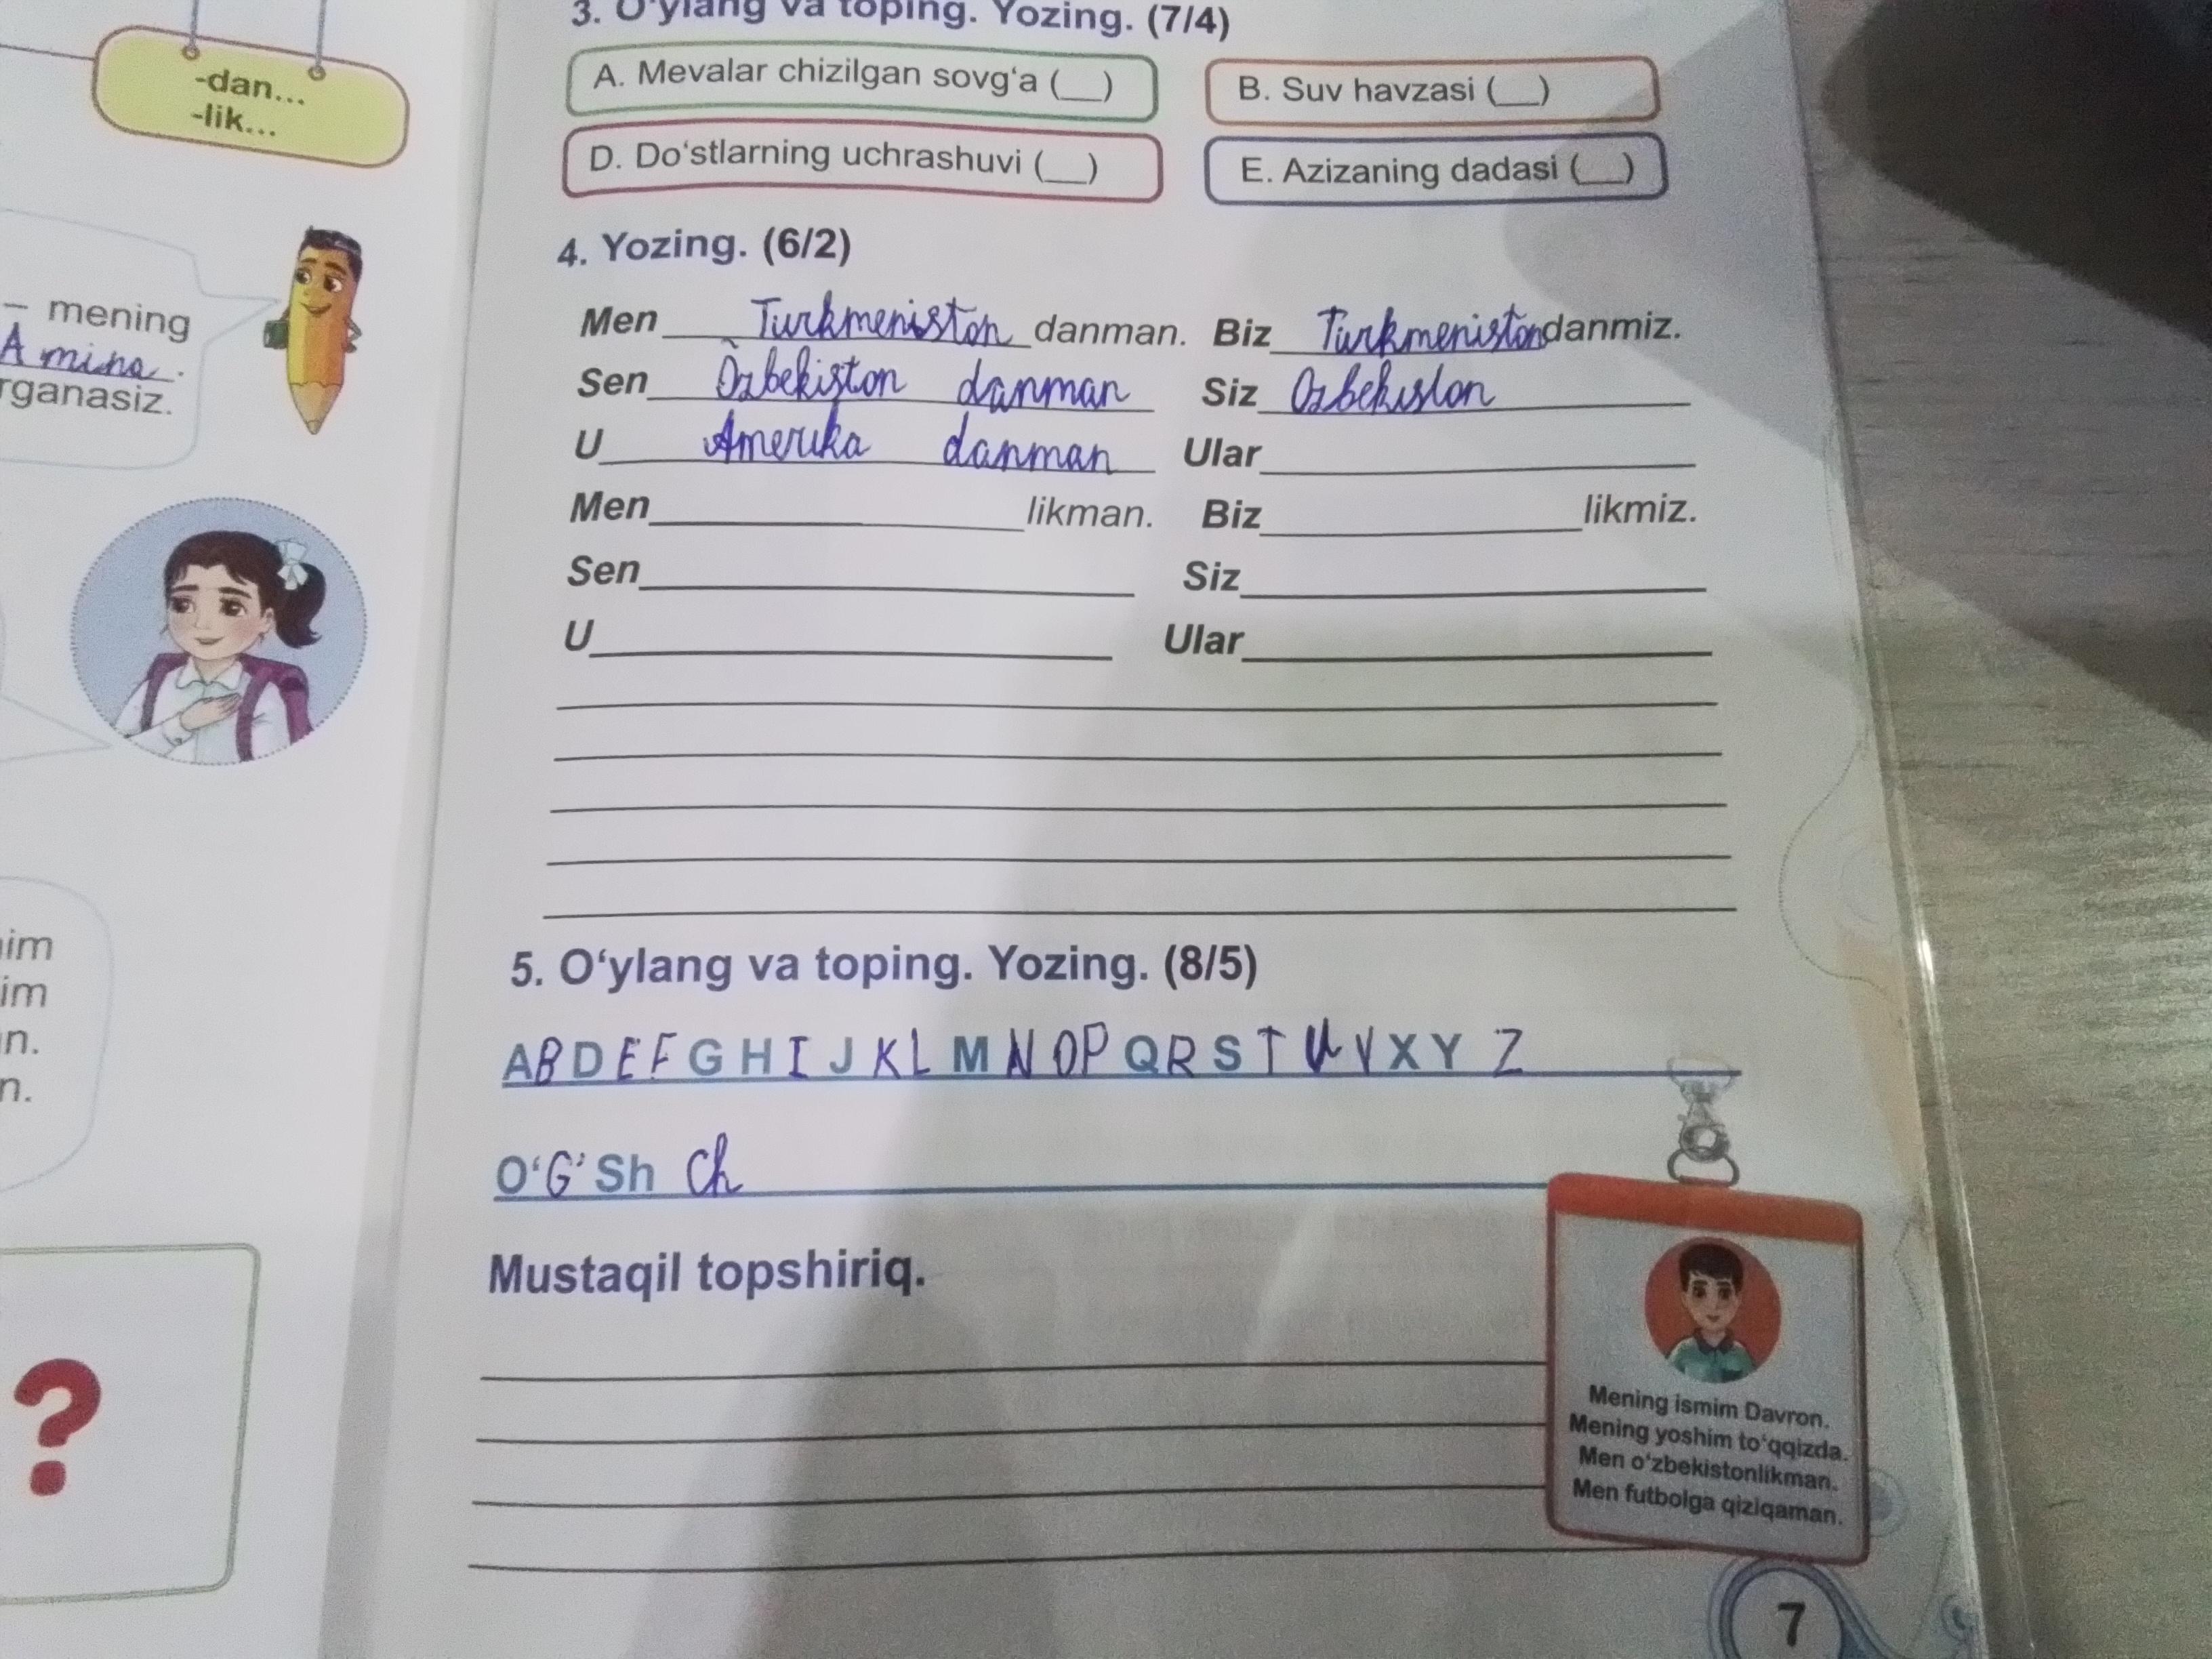 -dan...
-lik...
– mening
Amina.
rganasiz.
im
im
n.
n.
?
3. O‘ylang va toping. Yozing. (7/4)
A. Mevalar chizilgan sovg‘a (__) B. Suv havzasi (__)
D. Do‘stlarning uchrashuvi (__) E. Azizaning dadasi (__)
4. Yozing. (6/2)
Men Turkmeniston danman. Biz Turkmenistondanmiz.
Sen Ozbekiston danman Siz Ozbekiston
U Amerika danman Ular
Men likman. Biz likmiz.
Sen Siz
U Ular
5. O‘ylang va toping. Yozing. (8/5)
A B D E F G H I J K L M N O P Q R S T U V X Y Z
O‘ G’ Sh Ch
Mustaqil topshiriq.
Mening ismim Davron.
Mening yoshim to‘qqizda.
Men o‘zbekistonlikman.
Men futbolga qiziqaman.
7